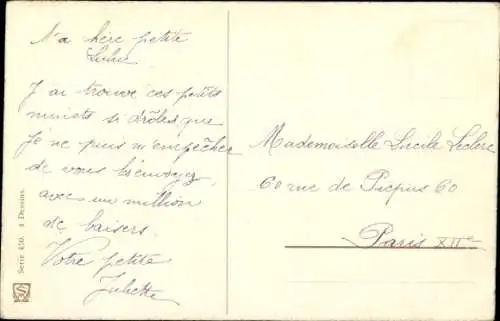 Ma chère petite
Lulu
J'ai trouvé ces petits
minets si drôles que
je ne puis m'empêcher
de vous les envoyer
avec un million
de baisers.
Votre petite
Juliette
Mademoiselle Lucile Leclerc
60 rue de Picpus 60
Paris XIIe
Serie 450. 4 Dessins.